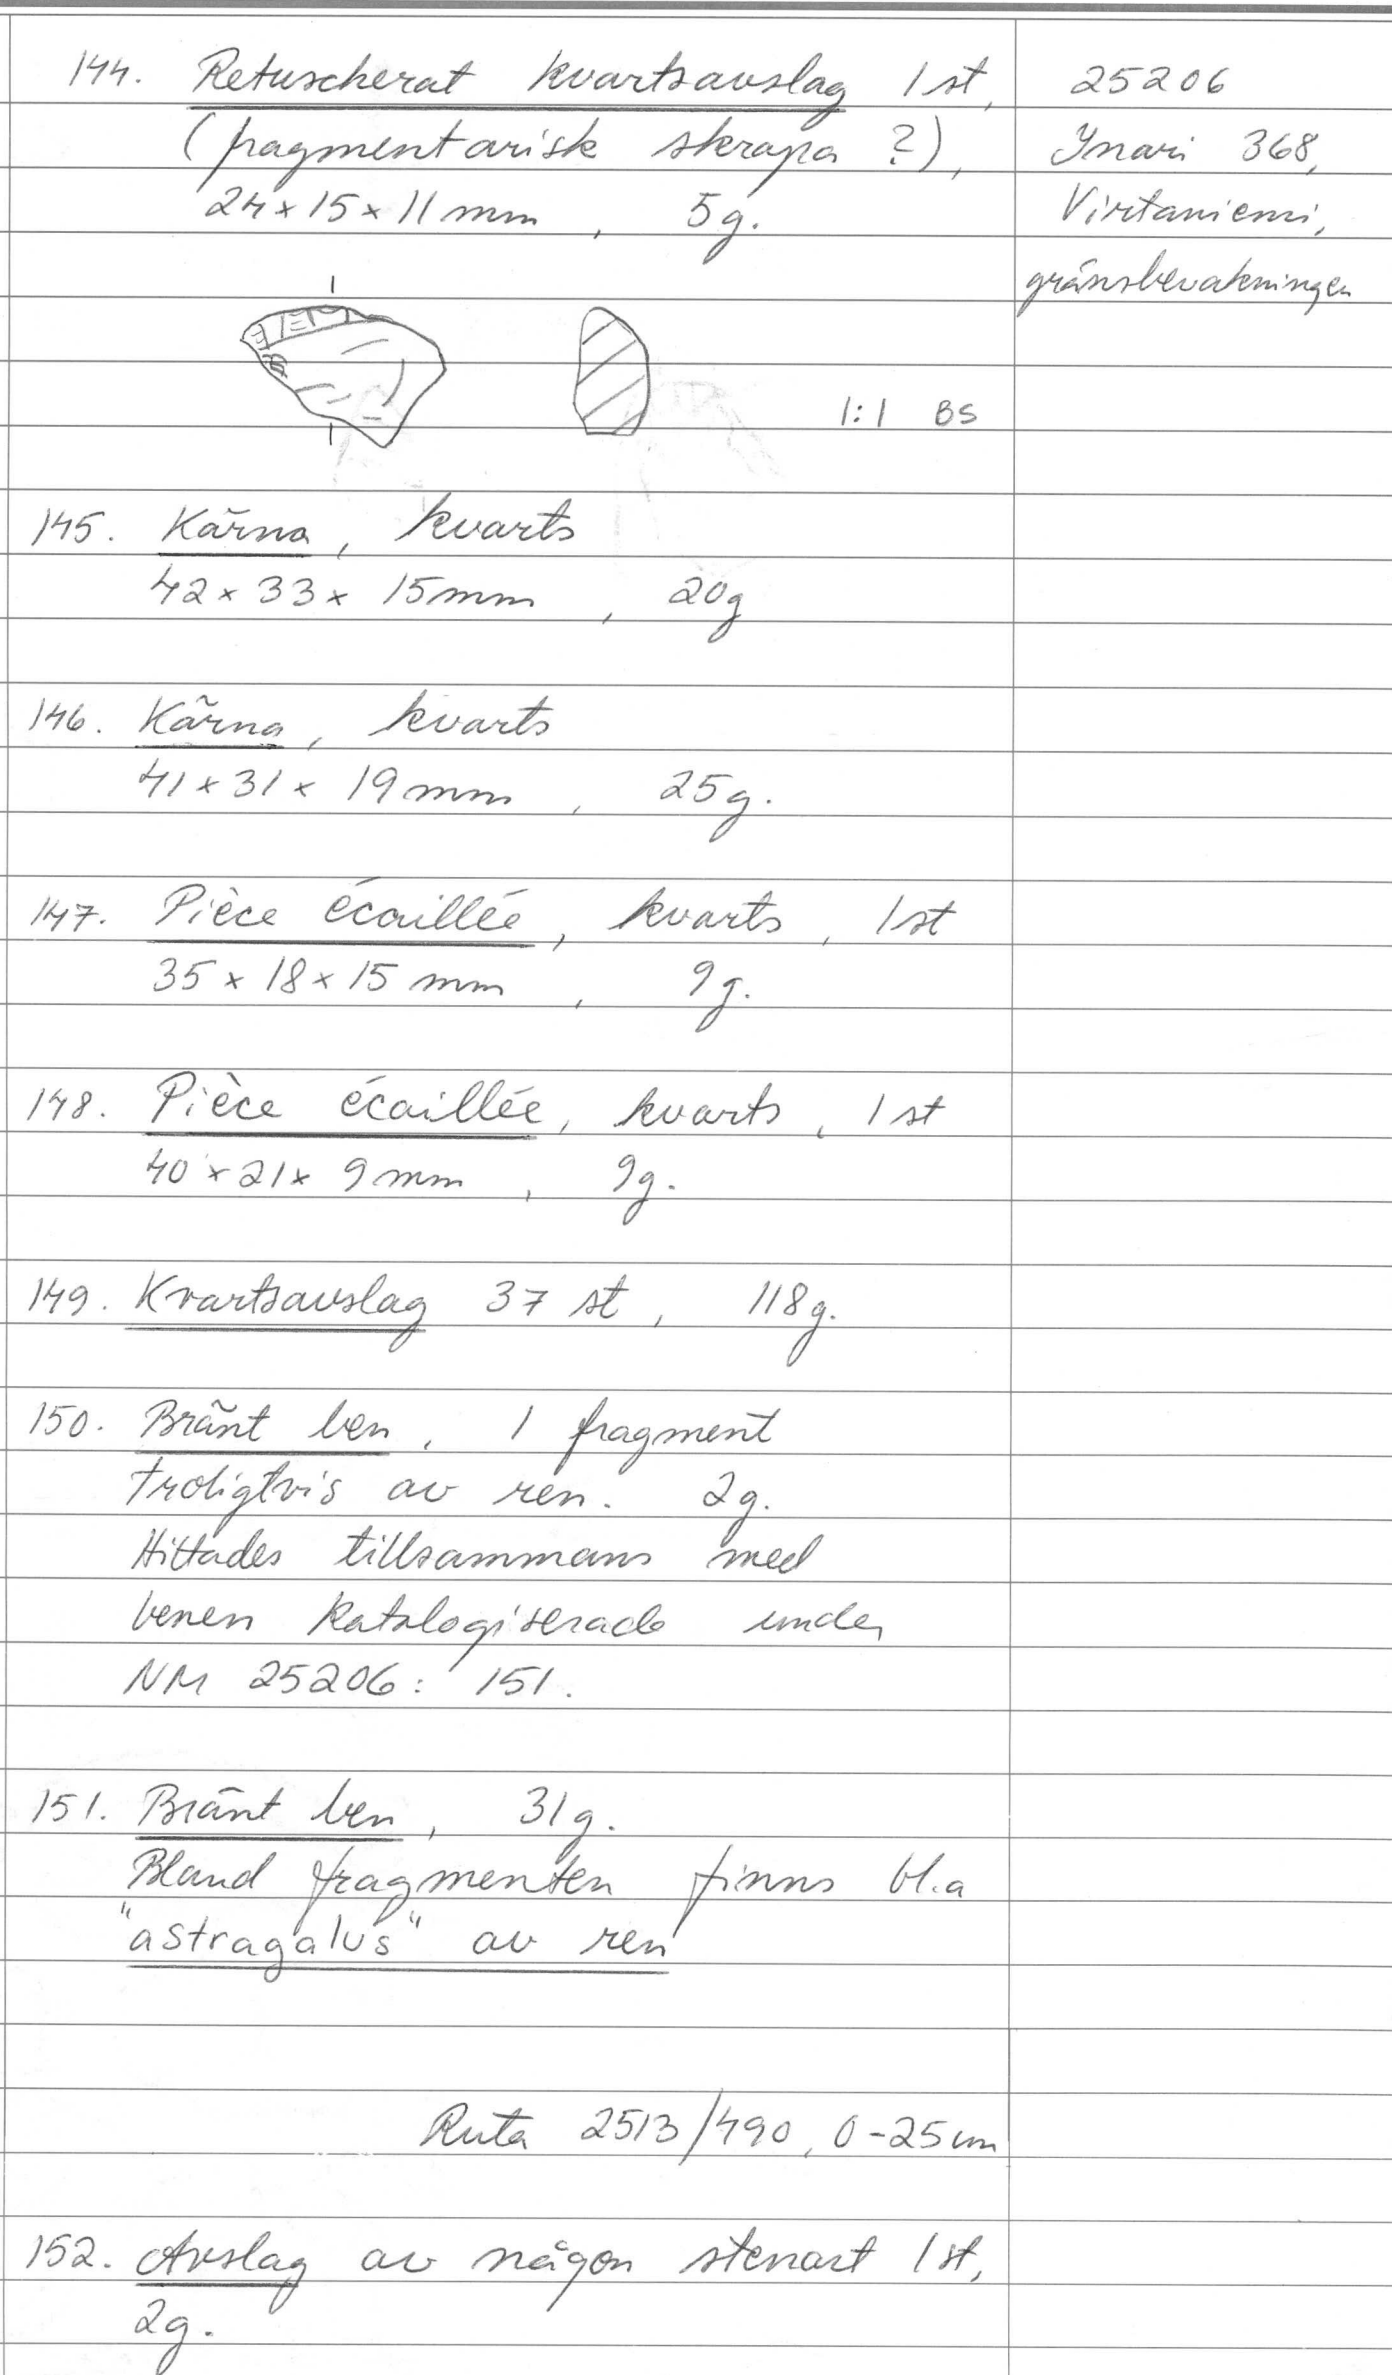 144. Retuscherat kvartsavslag 1 st,
(fragmentarisk skrapa ?),
24 x 15 x 11 mm, 5g.
25206
Ynari 368,
Virtaniemi,
gränsbevakningen
1:1 BS
145. Kärna, kvarts
42 x 33 x 15 mm, 20g
146. Kärna, kvarts
41 x 31 x 19 mm, 25g.
147. Pièce écaillée, kvarts, 1 st
35 x 18 x 15 mm, 9g.
148. Pièce écaillée, kvarts, 1 st
40 x 21 x 9 mm, 9g.
149. Kvartsavslag 37 st, 118g.
150. Bränt ben, 1 fragment
troligtvis av ren. 2g.
Hittades tillsammans med
benen katalogiserade under
NM 25206: 151.
151. Bränt ben, 31g.
Bland fragmenten finns bl.a
"astragalus" av ren
Ruta 2513/490, 0-25cm
152. Avslag av någon stenart 1 st,
2g.